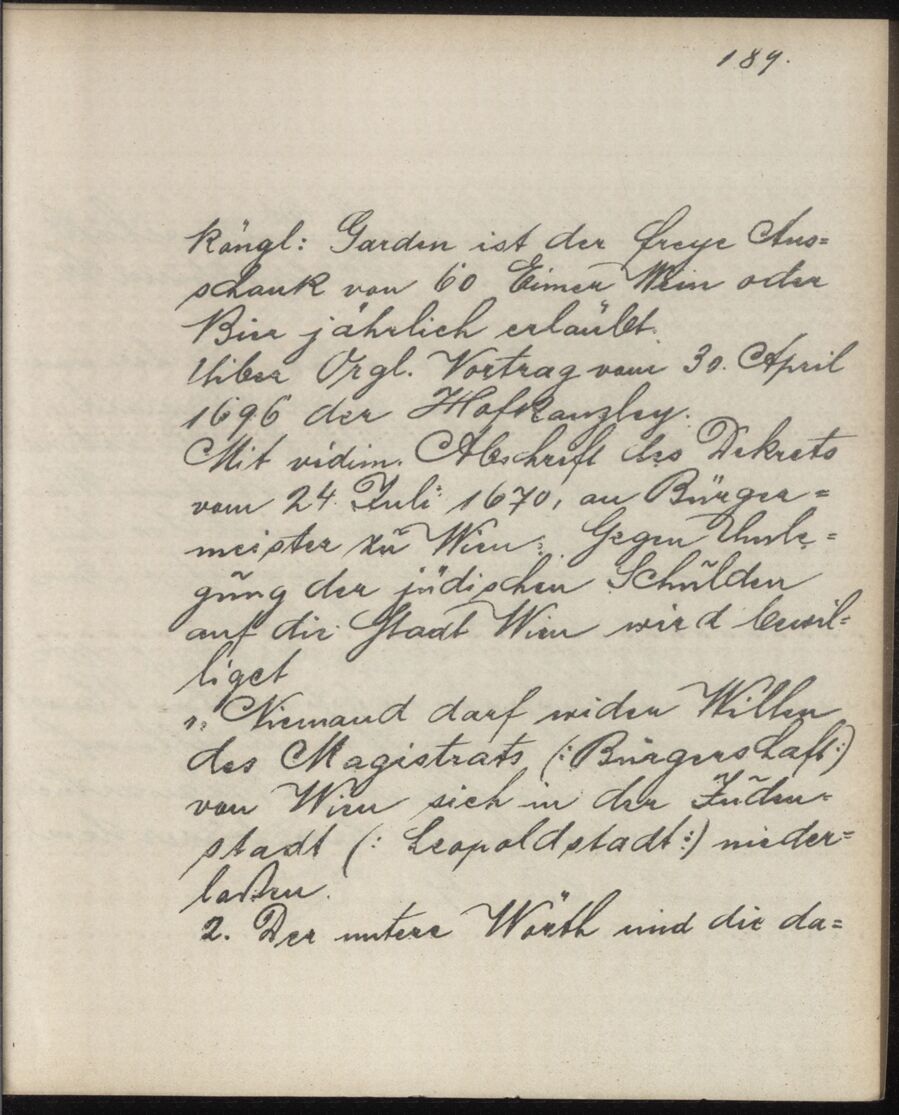 189.
Köngl: Garden ist der freye Aus=
schank von 60 Eimer Wein oder
Bier jährlich erlaübt.
Uiber Orgl. Vortrag vom 30. April
1696 der Hofkanzley.
Mit vidim. Abschrift des Dekrets
vom 24. Juli 1670, an Bürger=
meister zu Wien: Gegen Umle=
gung der jüdischen Schulden
auf die Stadt Wien wird bewil=
liget
1, Niemand darf wider Willen
des Magistrats (:Bürgerschaft:)
von Wien sich in der Juden=
stadt (: Leopoldstadt:) nieder=
laßen.
2. Der untere Wörth und die da=